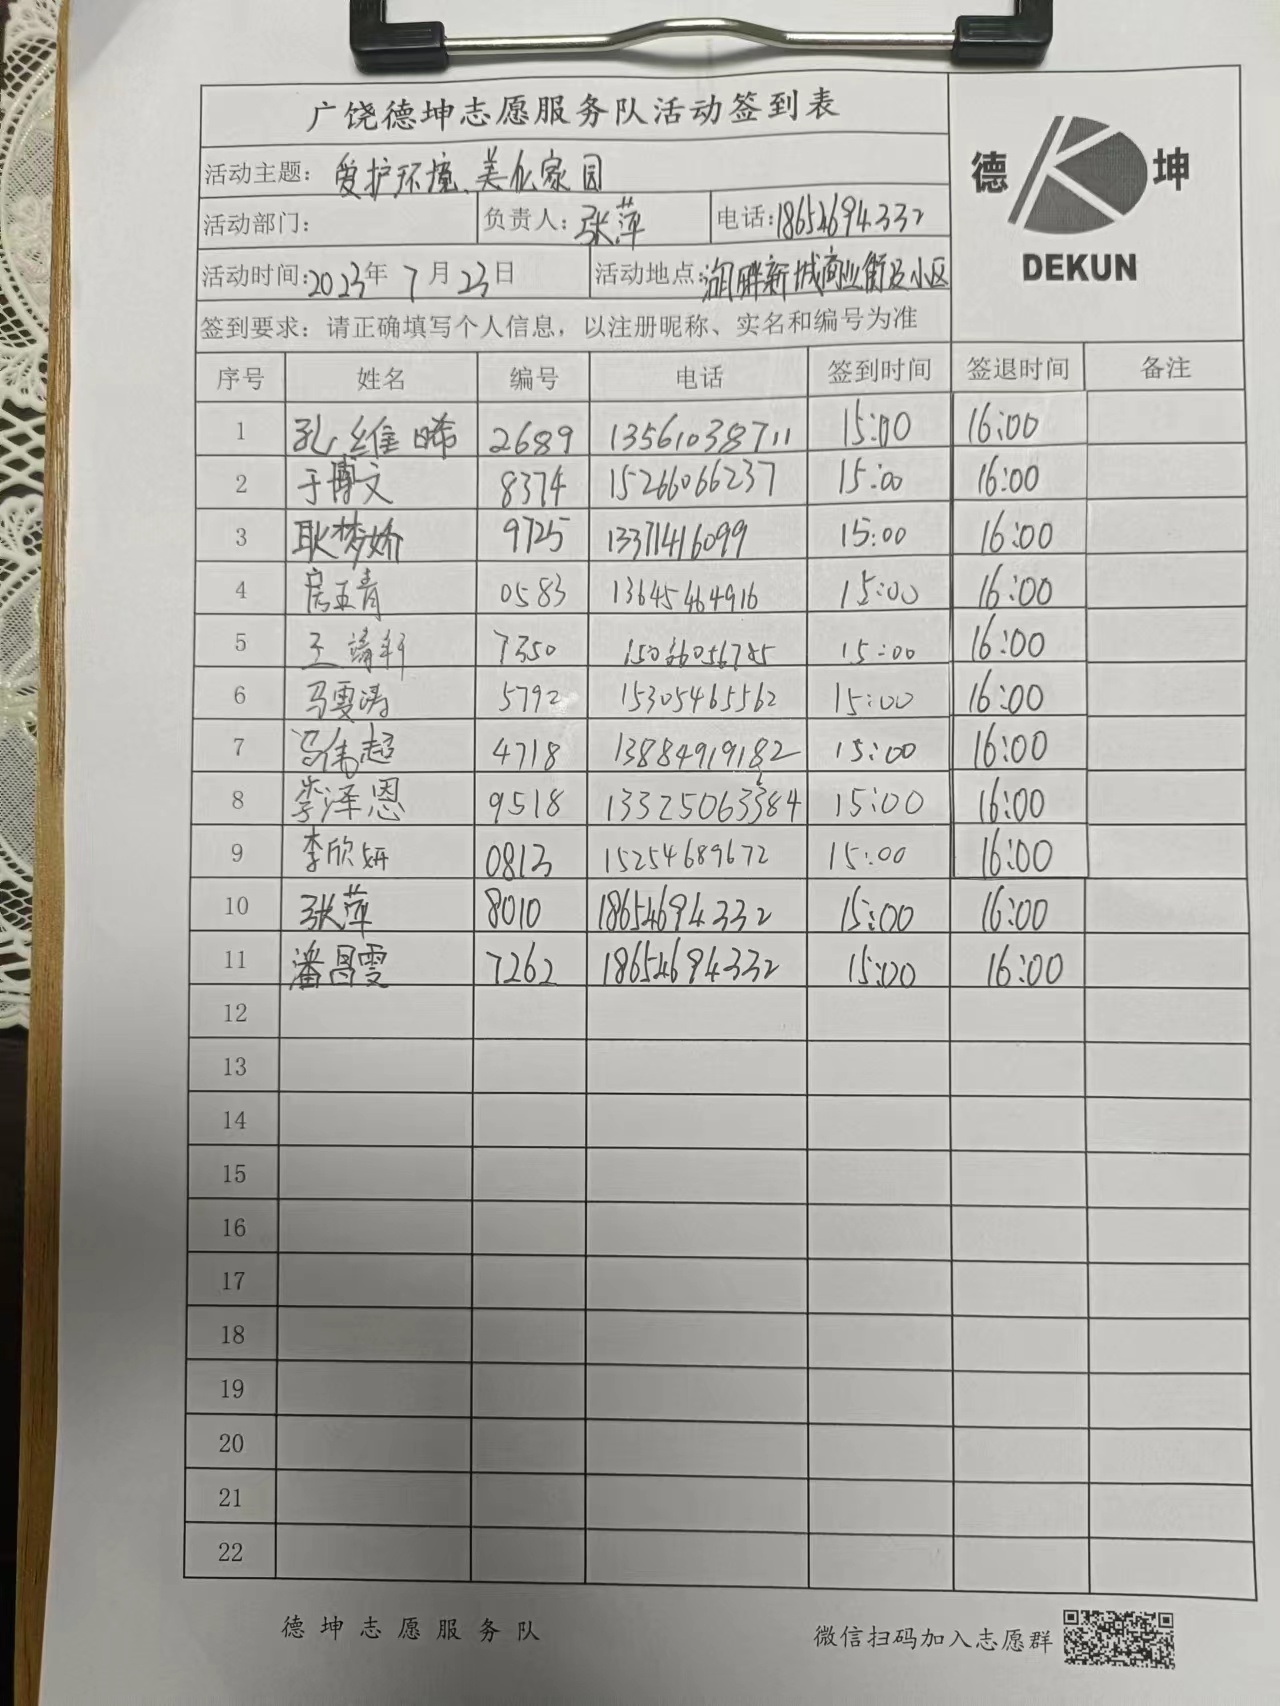 广饶德坤志愿服务队活动签到表
德 坤
DEKUN
活动主题: 爱护环境、美化家园
活动部门: 负责人: 张萍 电话: 18654694332
活动时间: 2023年 7月 23日 活动地点: 湖畔新城商业街及小区
签到要求: 请正确填写个人信息, 以注册昵称、实名和编号为准
序号 姓名 编号 电话 签到时间 签退时间 备注
1 孔维晞 2689 13561038711 15:00 16:00
2 于博文 8374 15266066237 15:00 16:00
3 耿梦娇 9725 13371416099 15:00 16:00
4 0583 13645464916 15:00 16:00
5 王靖轩 7350 15:00 16:00
6 马雯涛 5792 15305465562 15:00 16:00
7 冯伟超 4718 13884919182 15:00 16:00
8 李泽恩 9518 15:00 16:00
9 李欣妍 0813 15254689672 15:00 16:00
10 张萍 8010 18654694332 15:00 16:00
11 潘昌雯 7262 18654694332 15:00 16:00
12
13
14
15
16
17
18
19
20
21
22
德坤志愿服务队 微信扫码加入志愿群